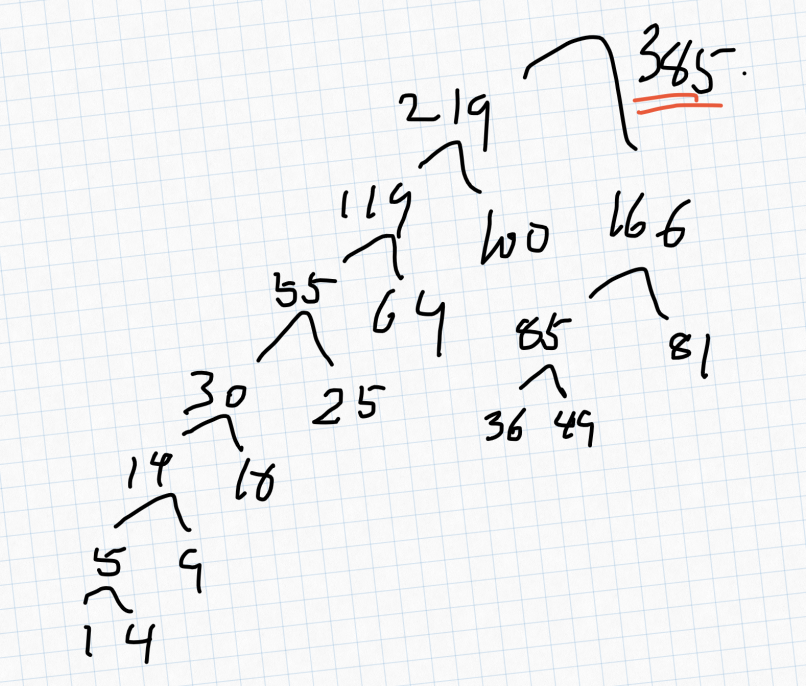 385.
219
119 100 166
55 64 85 81
30 25 36 49
14 16
5 9
1 4